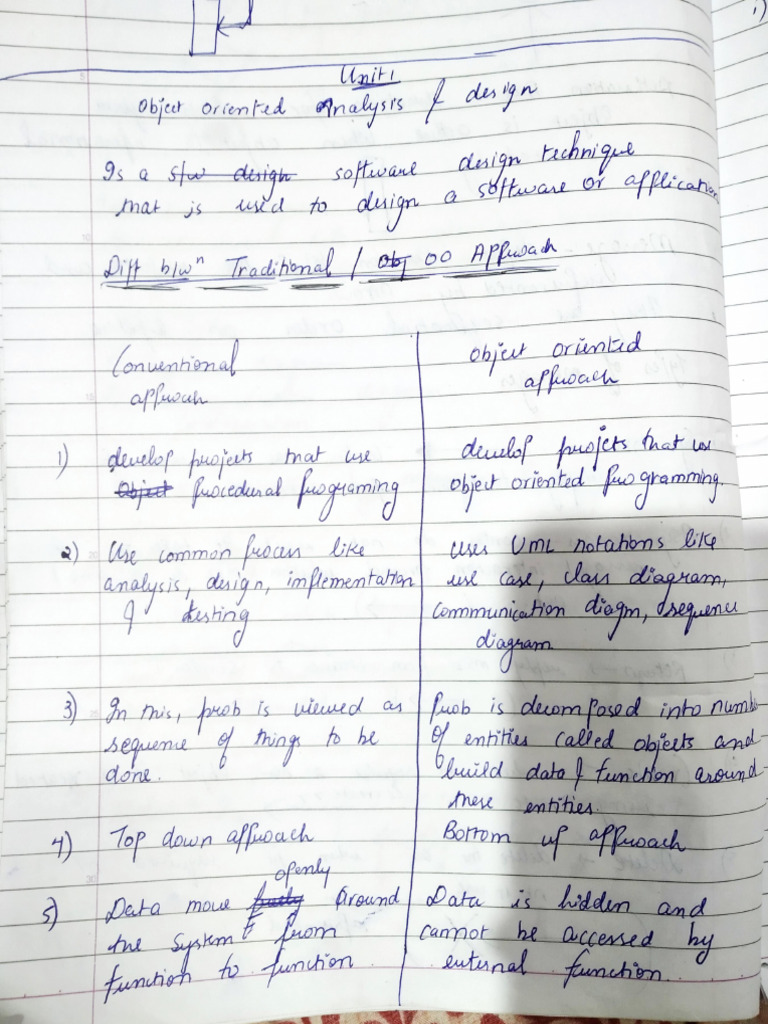 Unit 1
Object oriented Analysis & design
Is a s/w design software design technique
that is used to design a software or application
Diff b/wn Traditional / Obj OO Approach
Conventional
approach
Object oriented
approach
1) develop projects that use
Object Procedural Programing
develop projets that use
object oriented Programming.
2) Use common process like
analysis, design, implementation
& testing
uses UML notations like
use case, class diagram,
communication diagm, sequence
diagram.
3) In this, prob is viewed as
sequence of things to be
done.
Prob is decomposed into numbe
of entities called objects and
build data & function around
these entities.
4) Top down approach
Bottom up approach
openly
5) Data move around
the system from
function to function
Data is hidden and
cannot be accessed by
external function.